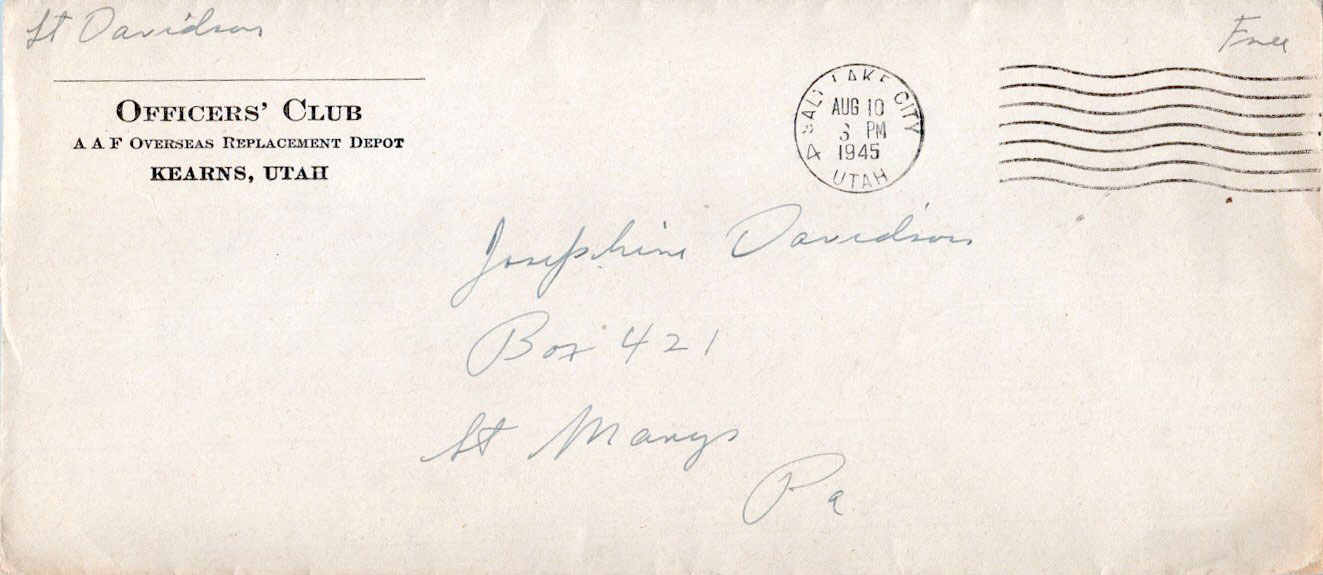 Lt Davidson
Free
OFFICERS' CLUB
A A F OVERSEAS REPLACEMENT DEPOT
KEARNS, UTAH
SALT LAKE CITY
AUG 10
PM
1945
UTAH
4
Josephine Davidson
Box 421
St Marys
Pa